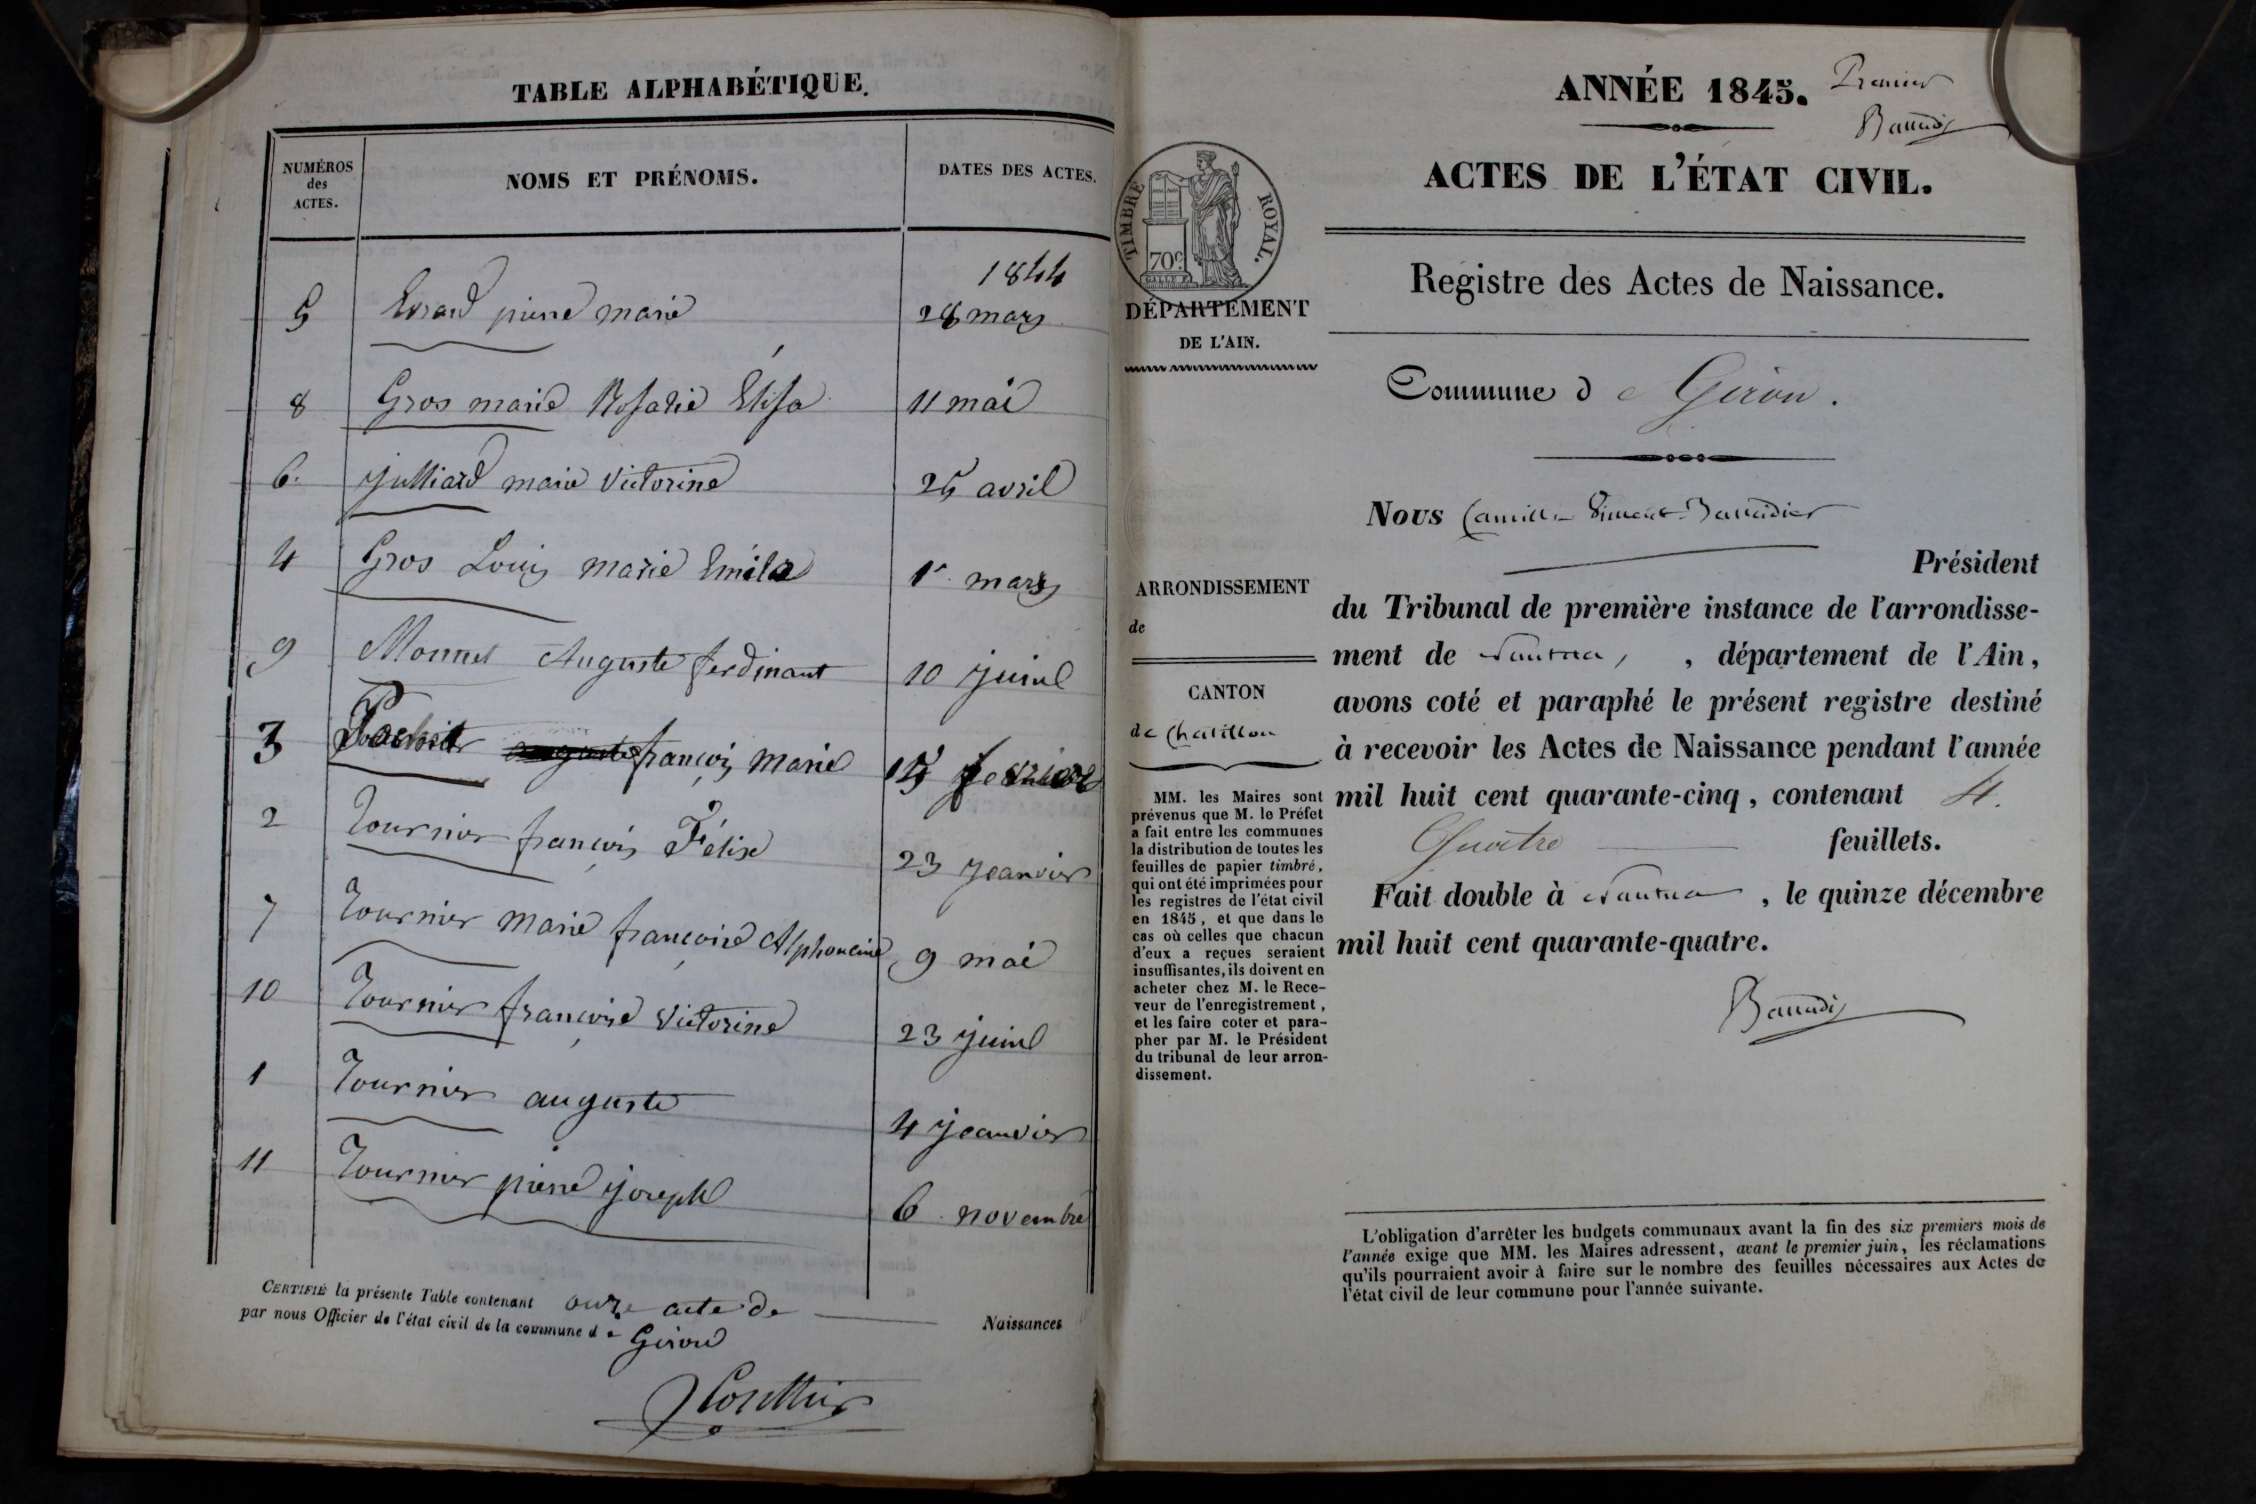 TABLE ALPHABÉTIQUE.
NUMÉROS des ACTES.
NOMS ET PRÉNOMS.
DATES DES ACTES.
1844
5 Evrard pierre marie 28 mars
8 Gros marie Rosalie Élisa 11 mai
6. Julliard marie victorine 25 avril
4 Gros Louis marie Emile 1er mars
9 Monnet Auguste ferdinant 10 juin
3 françois marie 15 fevrier
2 Tournier françois Félix 23 jeanvier
7 Tournier marie françoise Alphoncine 9 mai
10 Tournier françoise victorine 23 juin
1 Tournier auguste 4 jeanvier
11 Tournier pierre joseph 6 novembre
CERTIFIÉ la présente Table contenant onze acte de Naissances
par nous Officier de l'état civil de la commune de Giron
ANNÉE 1845. Premier
ACTES DE L'ÉTAT CIVIL.
TIMBRE ROYAL.
70c.
DÉPARTEMENT
DE L'AIN.
Registre des Actes de Naissance.
Commune de Giron.
ARRONDISSEMENT
de
CANTON
de Chatillon
MM. les Maires sont
prévenus que M. le Préfet
a fait entre les communes
la distribution de toutes les
feuilles de papier timbré,
qui ont été imprimées pour
les registres de l'état civil
en 1845, et que dans le
cas où celles que chacun
d'eux a reçues seraient
insuffisantes, ils doivent en
acheter chez M. le Rece-
veur de l'enregistrement,
et les faire coter et para-
pher par M. le Président
du tribunal de leur arron-
dissement.
Nous Camille
Président
du Tribunal de première instance de l'arrondisse-
ment de Nantua, , département de l'Ain,
avons coté et paraphé le présent registre destiné
à recevoir les Actes de Naissance pendant l'année
mil huit cent quarante-cinq, contenant 4.
Quatre feuillets.
Fait double à Nantua, le quinze décembre
mil huit cent quarante-quatre.
L'obligation d'arrêter les budgets communaux avant la fin des six premiers mois de
l'année exige que MM. les Maires adressent, avant le premier juin, les réclamations
qu'ils pourraient avoir à faire sur le nombre des feuilles nécessaires aux Actes de
l'état civil de leur commune pour l'année suivante.